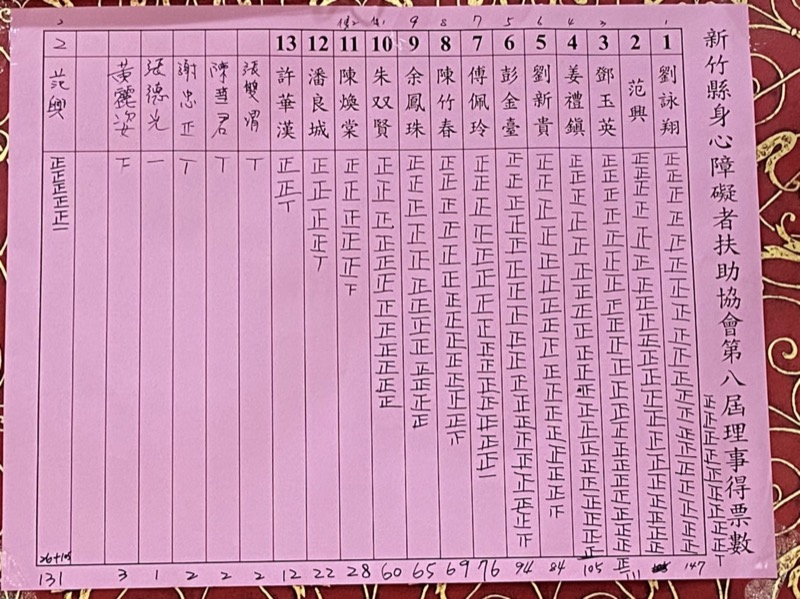 新竹縣身心障礙者扶助協會第八屆理事得票數
1
1 劉詠翔 正正正正正正正正正正正正正正正正正正正正正正正正正正正正正丅 147
2 范興 正正正正正正正正正正正正正正正正正正正正正
3
3 鄧玉英 正正正正正正正正正正正正正正正正正正正正正正一 111
4
4 姜禮鎮 正正正正正正正正正正正正正正正正正正正正正 105
6
5 劉新貴 正正正正正正正正正正正正正正正正 84
5
6 彭金臺 正正正正正正正正正正正正正正正正正正 94
7
7 傅佩玲 正正正正正正正正正正正正正正正一 76
8
8 陳竹春 正正正正正正正正正正正正正 69
9
9 余鳳珠 正正正正正正正正正正正正正 65
10 朱双賢 正正正正正正正正正正正正 60
11 陳煥棠 正正正正正下 28
12 潘良城 正正正正丅 22
13 許華漢 正正丅 12
張雙渭 丅 2
陳莹君 丅 2
謝忠正 丅 2
張德光 一 1
黃麗姿 下 3
2
2 范興 正正正正正一 26+105
131